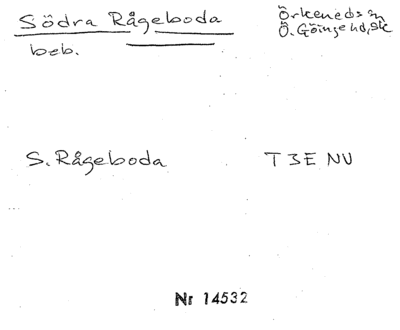 Södra Rågeboda
Örkeneds sn
Ö. Göinge hd, Sk
beb.
S. Rågeboda
T 3E NV
Nr 14532